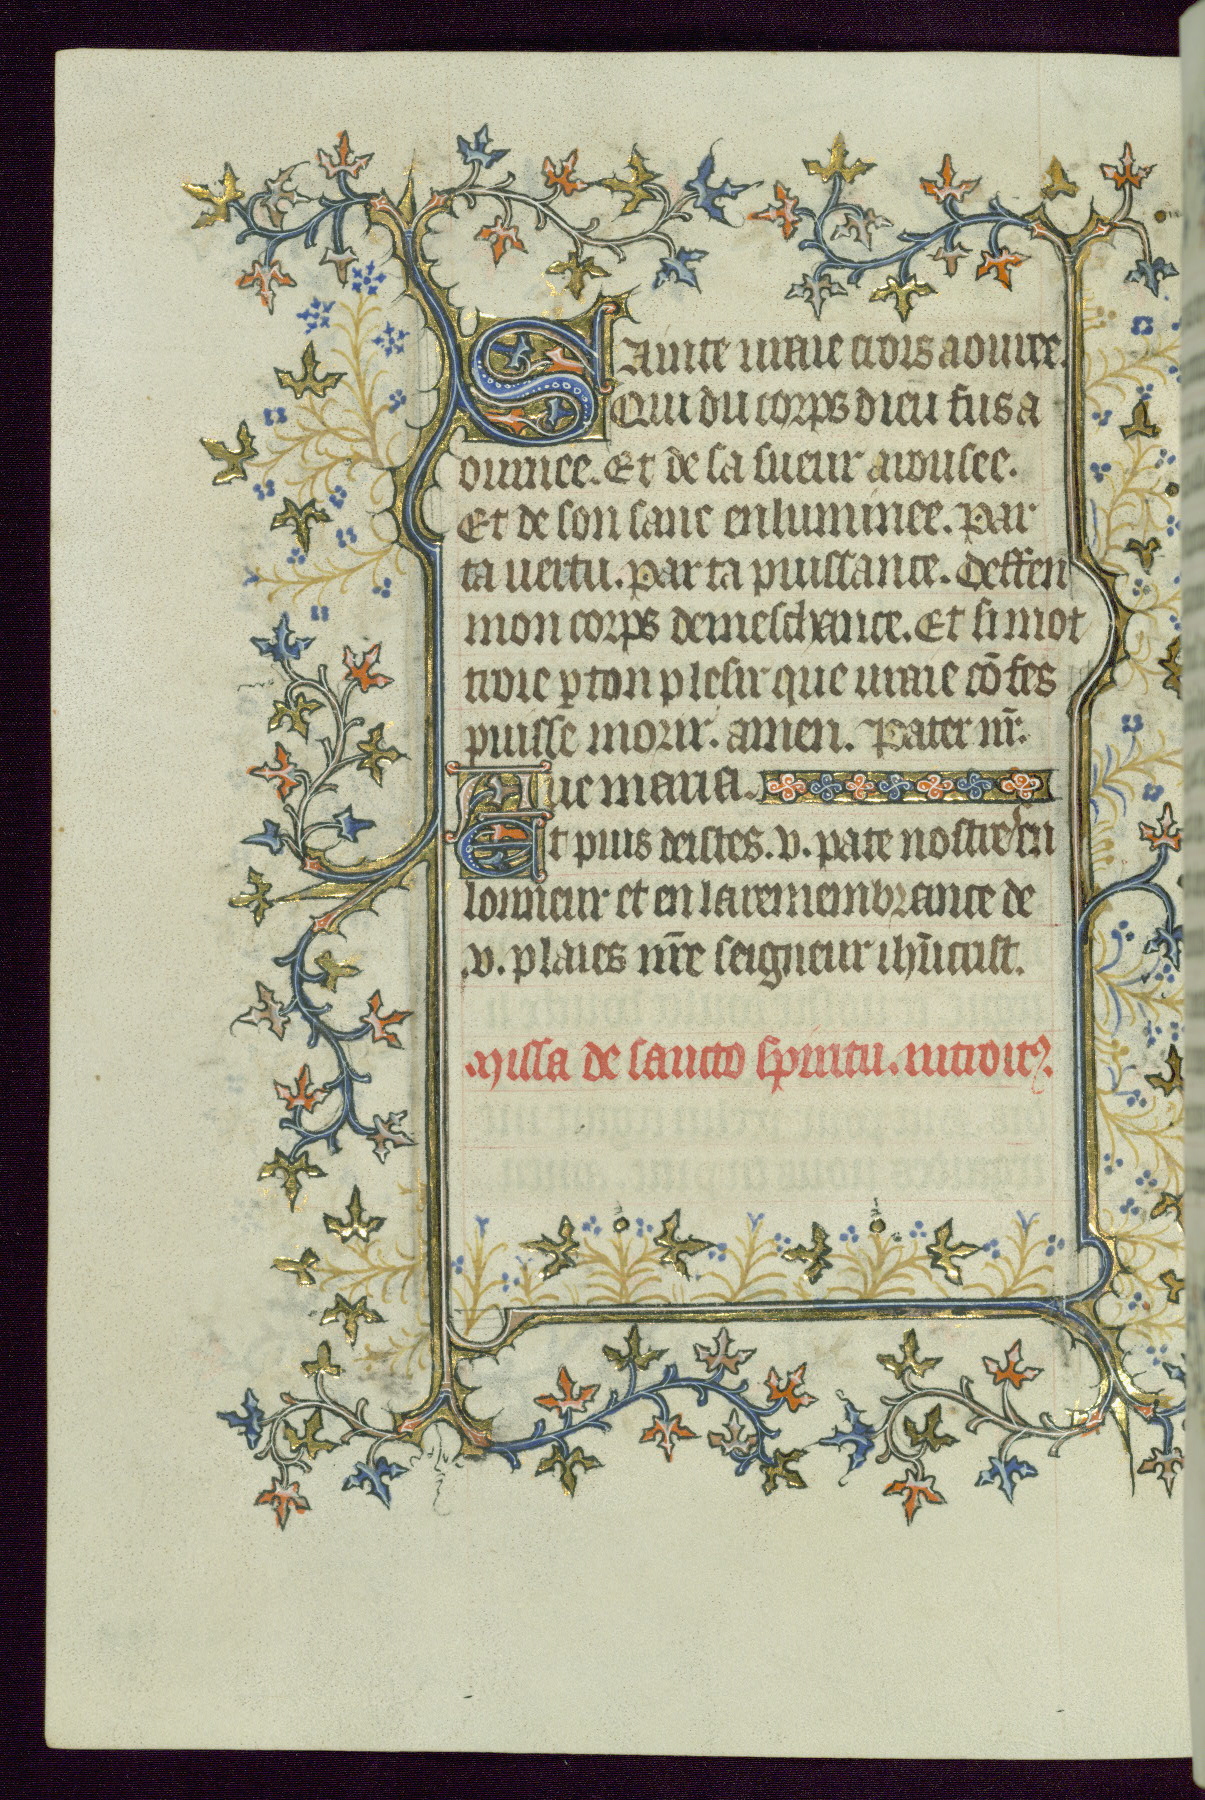 Sainte uraie crois aouree.
Qui du corps dieu fus a
ournee. Et de sa sueur arousee.
Et de son sanc enluminee. Par
ta uertu. par ta puissance. deffen
mon corps de meschance. Et si mot
troie p ton plesir que urai cōfes
puisse morir. amen. Pater nr̄.
Aue maria.
Et puis deistes .v. pate nostre en
lonneur et en la remembrance de
.v. plaies nr̄e seigneur ihūcrist.
Missa de sancto spiritu. introit⁊.